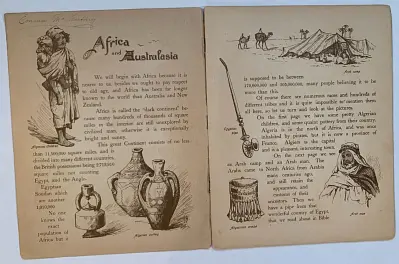 Africa
and Australasia
We will begin with Africa because it is
nearer to us, besides we ought to pay respect
to old age, and Africa has been no longer
known to the world than Australia and New
Zealand.
Africa is called the "dark continent" because
many hundreds of thousands of square
miles in the interior are still unexplored by
civilized man, otherwise it is exceptionally
bright and sunny.
This great Continent consists of no less
than 11,500,000 square miles, and is
divided into many different countries,
the British possessions being
square miles not counting
Egypt, and the Anglo-
Egyptian
Soudan which
are another
No one
knows the
exact
population of
Africa but it
Algerian pottery
is supposed to be between
170,000,000 and 200,000,000, many people believing it to be
more than this.
Of course there are numerous races and hundreds of
different tribes and it is quite impossible to mention them
all here, so let us turn and look at the pictures.
On the first page we have some pretty Algerian
children, and some quaint pottery from their country.
Algeria is in the north of Africa, and was once
inhabited by pirates, but it is now a province of
France. Algiers is the capital
and it is a pleasant, interesting town.
On the next page we see
an Arab camp and an Arab man. The
Arabs came to North Africa from Arabia
many centuries ago,
and still retain the
appearance, and
manners of their
ancestors. Then we
have a pipe from the
wonderful country of Egypt,
that we read about in Bible
Arab camp
Egyptian
pipe
Arab man